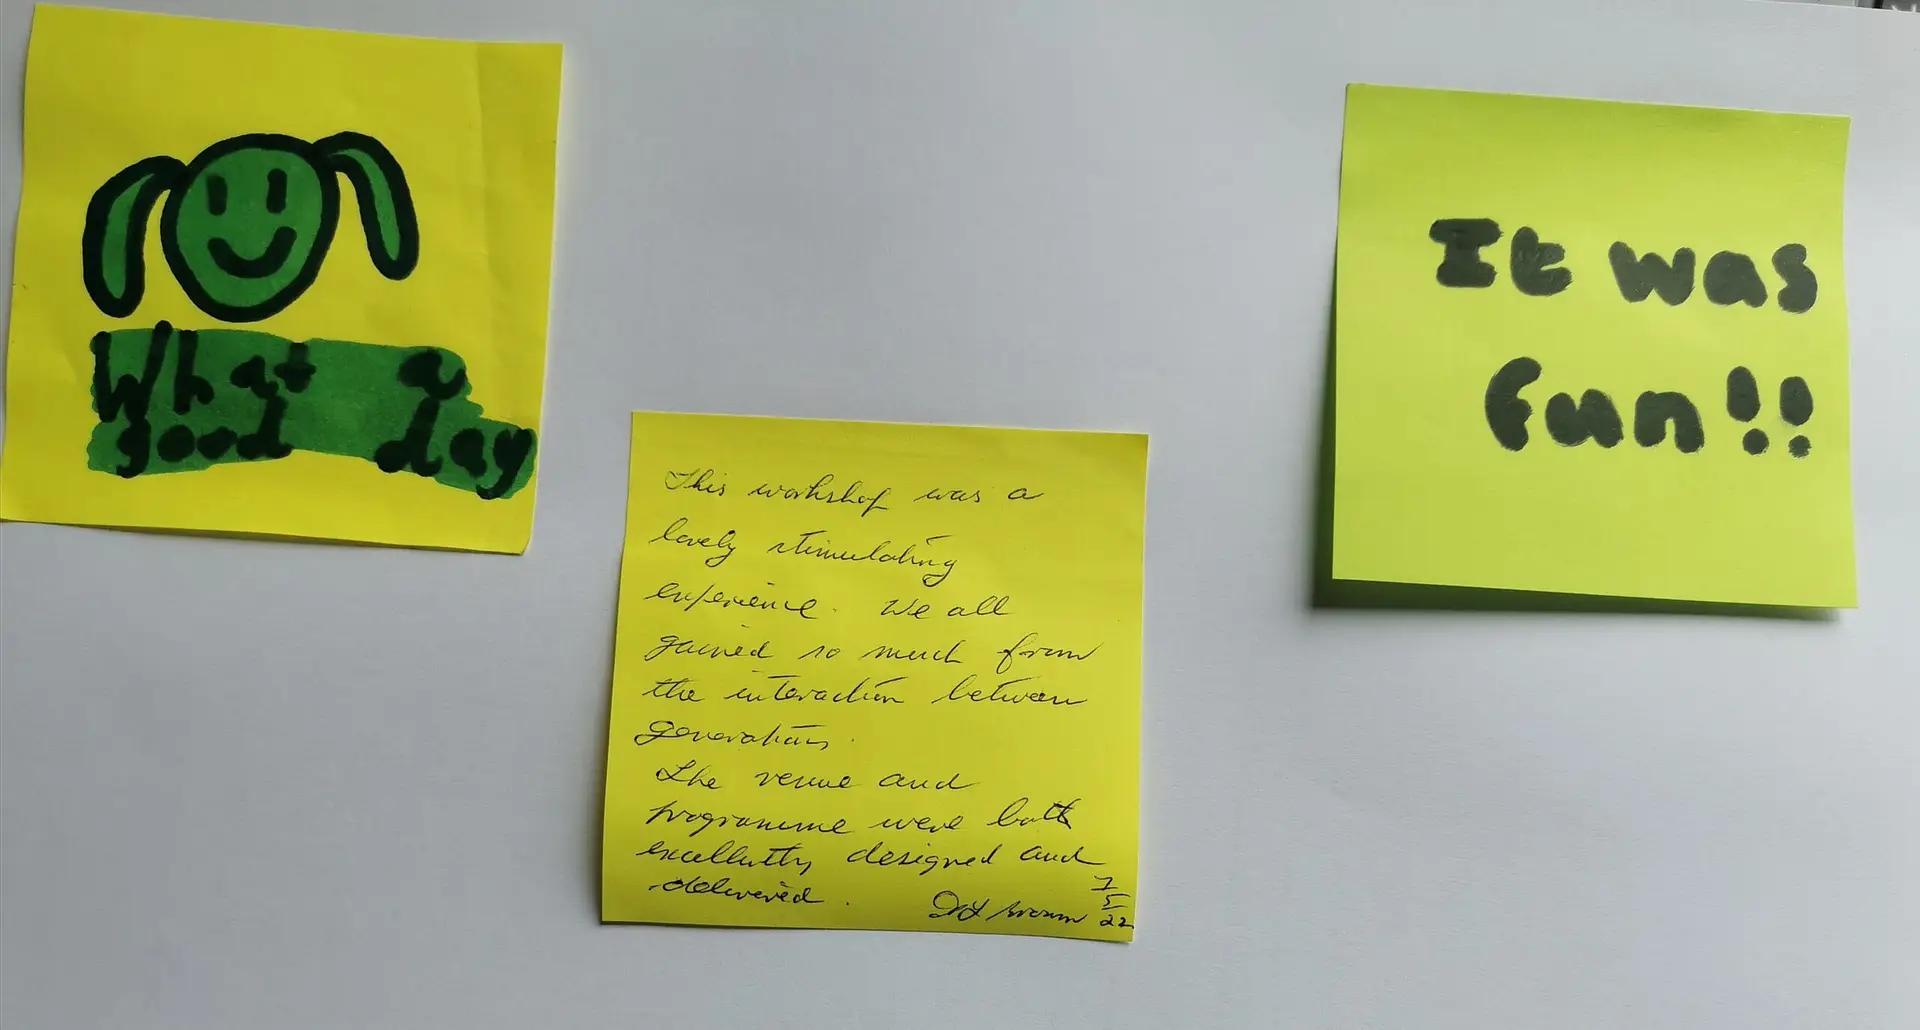 What a
good day
This workshop was a
lovely stimulating
experience. We all
gained so much from
the interaction between
generations.
The venue and
programme were both
excellently designed and
delivered.
Brown 7/5/22
It was
fun!!